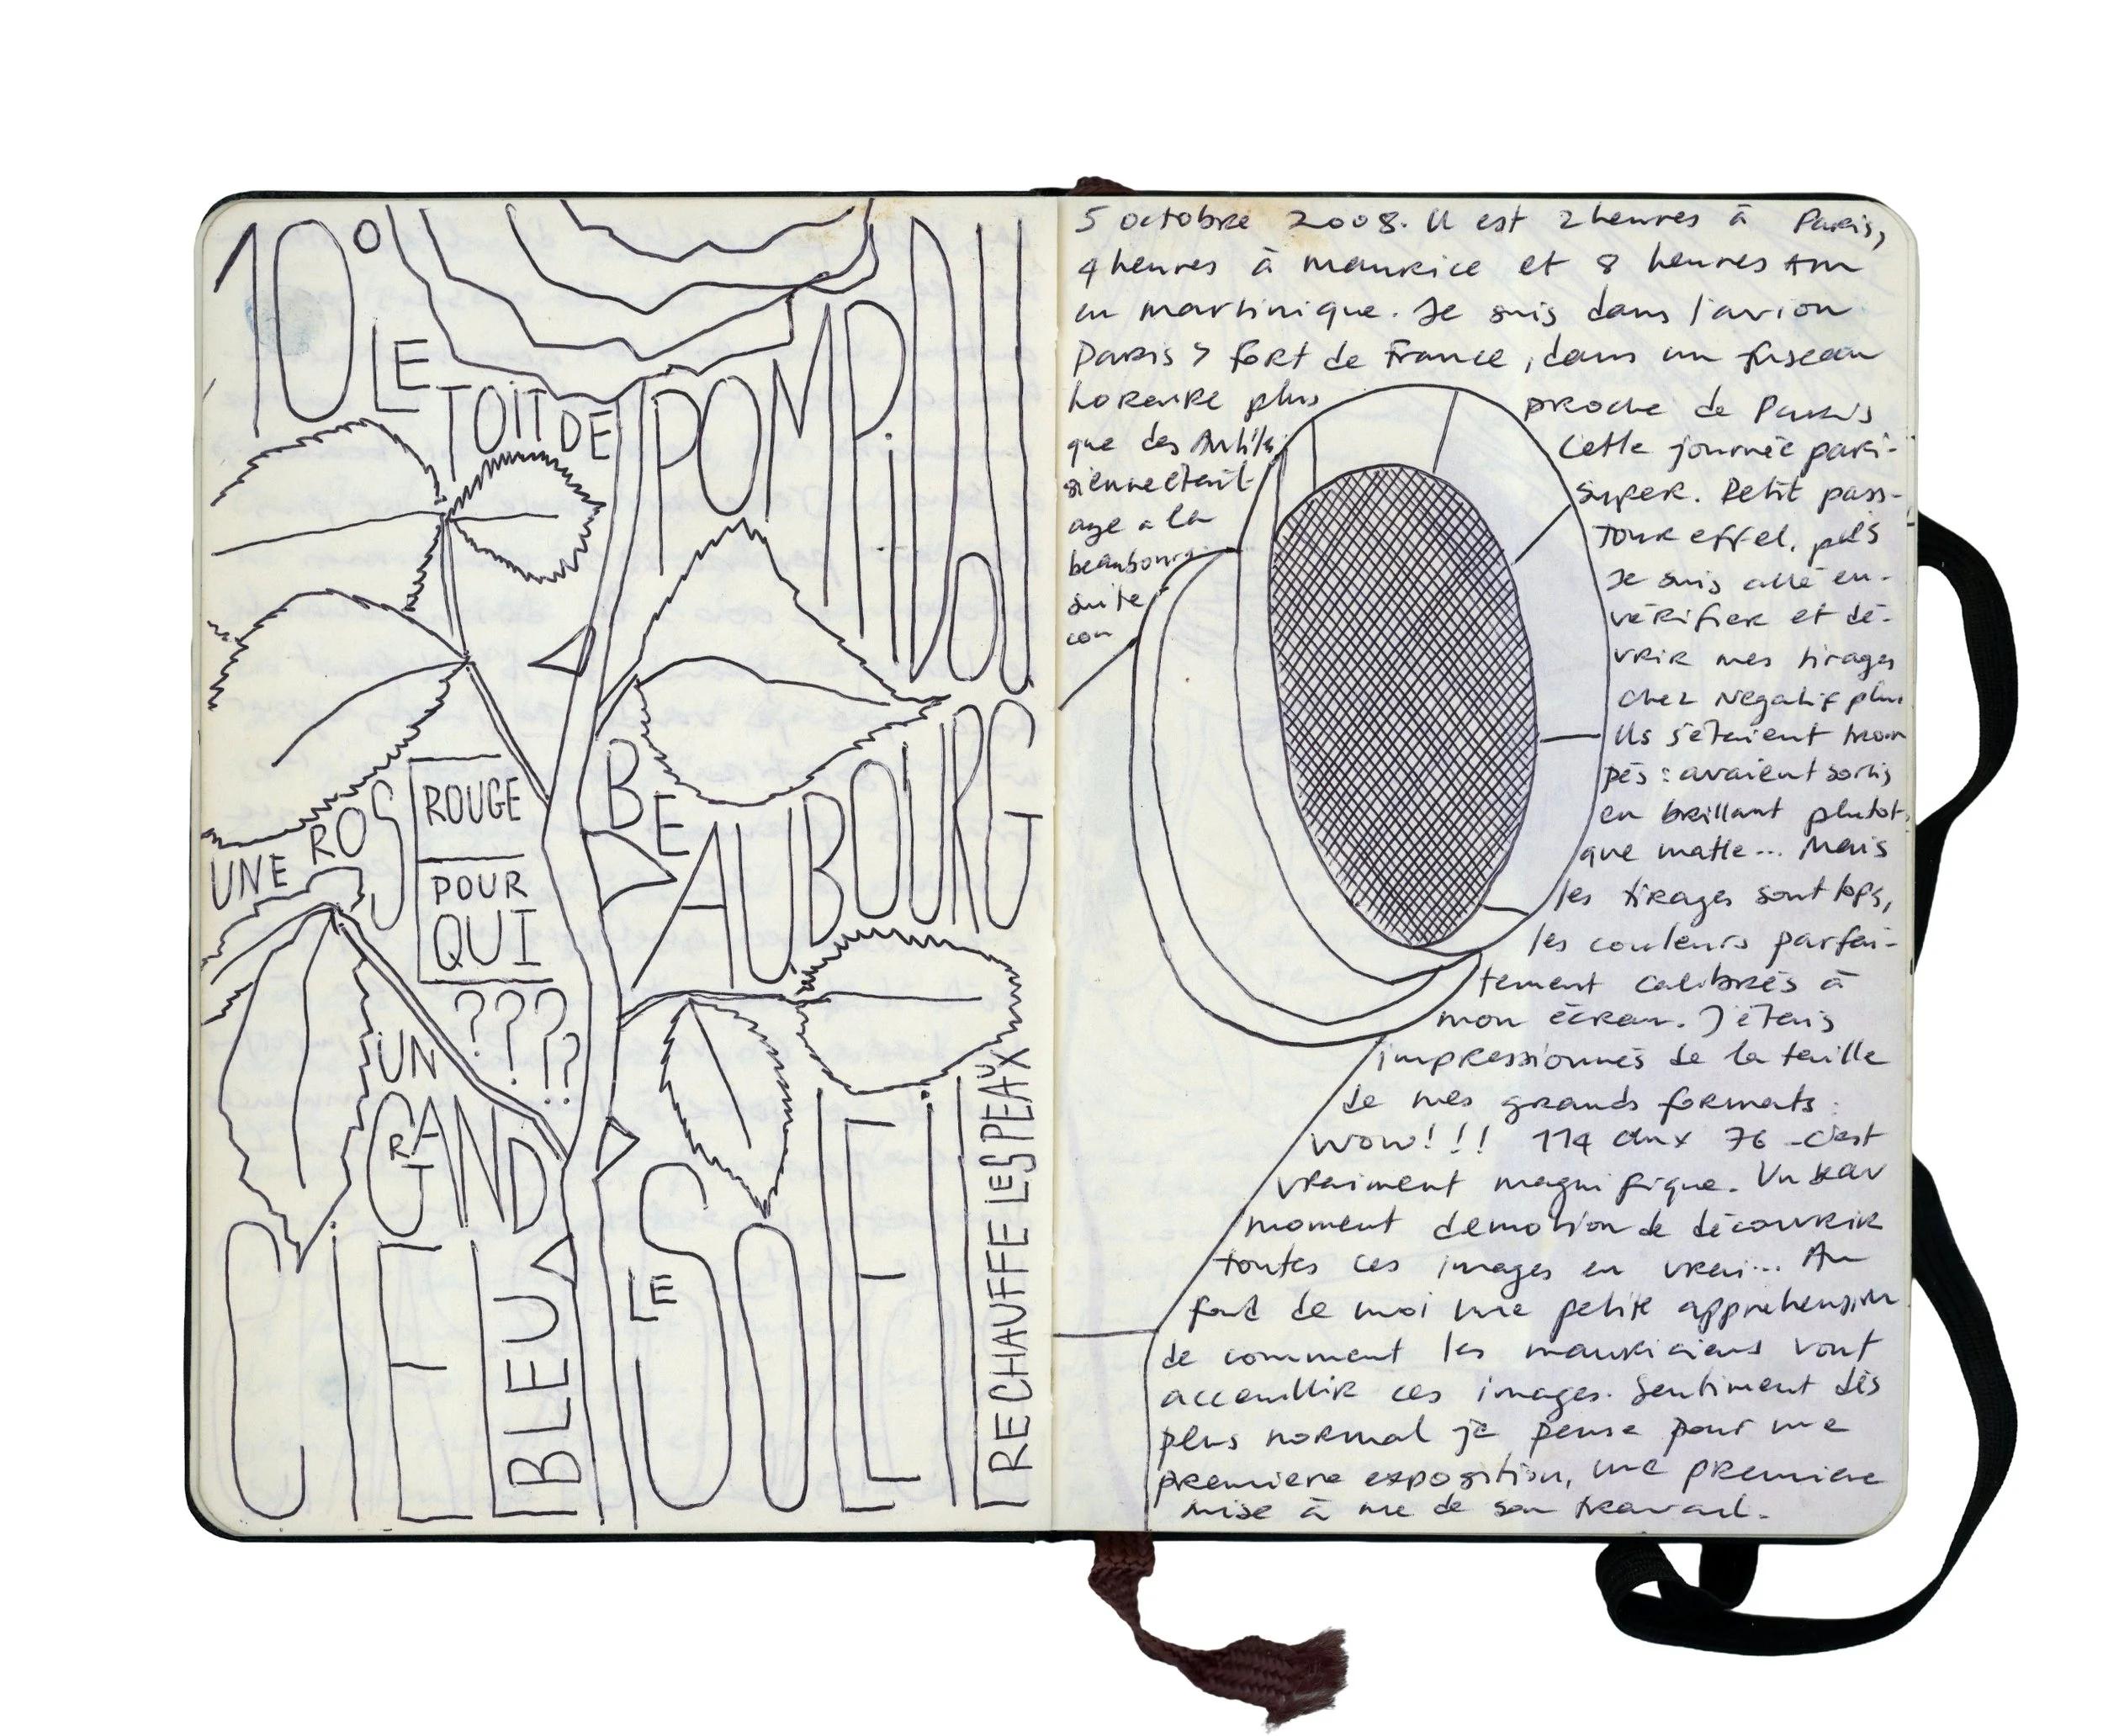 10°
LE
TOIT DE
POMPIDOU
BEAUBOURG
UNE ROSE
ROUGE
POUR
QUI
?????
UN
GRAND
CIEL
BLEU
LE
SOLEIL
RECHAUFFE LES PEAUX
5 octobre 2008. Il est 2 heures à Paris,
4 heures à maurice et 8 heures
en martinique. Je suis dans l'avion
Paris > fort de France, dans un fuseau
horaire plus proche de Paris
que des Antilles Cette journée pari-
sienne était super. Petit pass-
age a la Tour effel, puis
beaubourg. Je suis allé en-
suite vérifier et dé-
cou vrir mes tirages
chez Negatif plus
Ils s'étaient trom
pés : avaient sortis
en brillant plutot
que matte... Mais
les tirages sont tops,
les couleurs parfai-
tement calibrés à
mon écran. J'étais
impressionnés de la taille
de mes grands formats.
Wow!!! 114 cm x 76 - c'est
vraiment magnifique. Un beau
moment demotion de découvrir
toutes ces images en vrai... Au
fond de moi une petite apprehension
de comment les mauriciens vont
accueillir ces images. Sentiment des
plus normal je pense pour une
premiere exposition, une premiere
mise à nue de son travail.